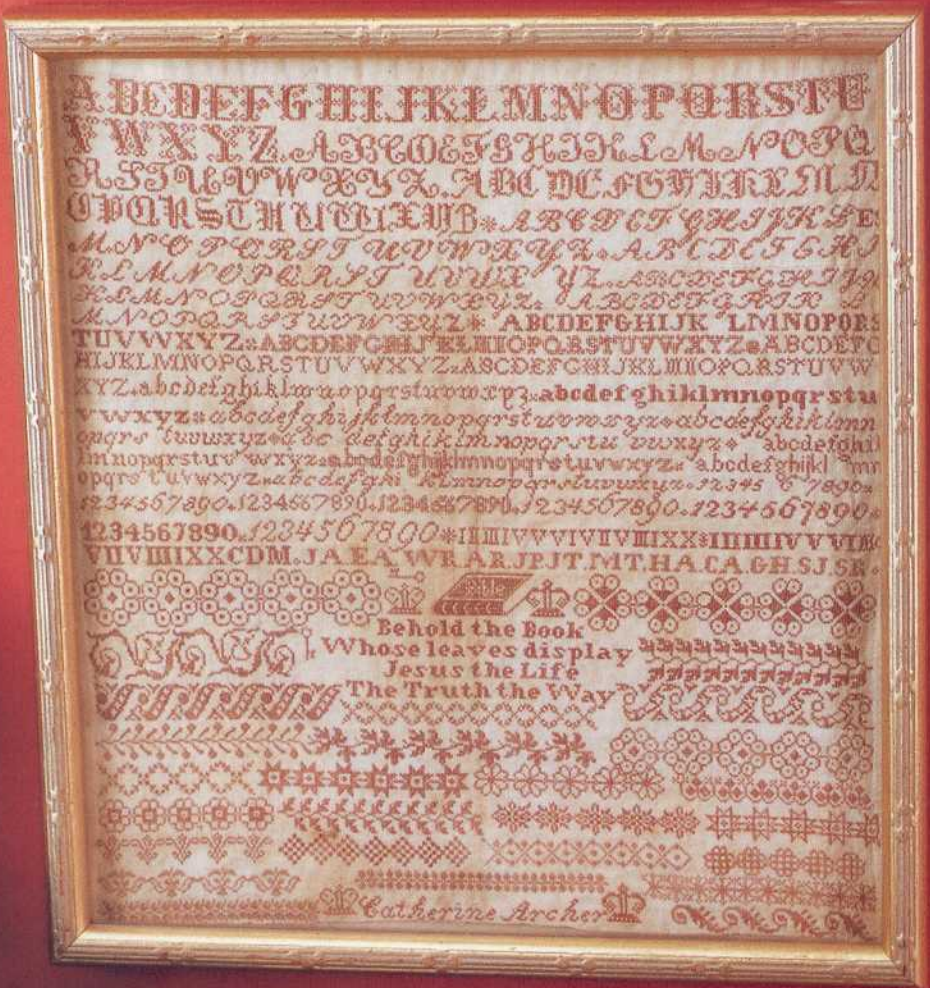 ABCDEFGHIJKLMNOPQRSTU
VWXYZ.ABCDEFGHIKLMNOPQ
RSTUVWXYZ.ABCDEFGHIKLMN
OPQRSTUVWXYZ*ABCDEFGHIJKL
MNOPQRSTUVWXYZ.ABCDEFGHI
KLMNOPQRSTUVWXYZ.ABCDEFGHIJ
KLMNOPQRSTUVWXYZ.ABCDEFGHIK
MNOPQRSTUVWXYZ*ABCDEFGHIJKLMNOPQRS
TUVWXYZ*ABCDEFGHIJKLMNOPQRSTUVWXYZ*ABCDEFG
HIJKLMNOPQRSTUVWXYZ*ABCDEFGHIJKLMNOPQRSTUVW
XYZ.abcdefghiklmnopqrstuvwxyz*abcdefghiklmnopqrstu
vwxyz*abcdefghijklmnopqrstuvwxyz*abcdefghiklmn
opqrstuvwxyz*abcdefghiklmnopqrstuvwxyz*abcdefghi
lmnopqrstuvwxyz*abcdefghijklmnopqrstuvwxyz*abcdefghijklmn
opqrstuvwxyz*abcdefghiklmnopqrstuvwxyz*1234567890
1234567890.1234567890.1234567890.1234567890.1234567890.
1234567890.1234567890*
VIIVIIIIXXCDM.JA.EA.WR.AR.JP.JT.MT.HA.CA.GH.SJ.SR.
Bible
Behold the Book
Whose leaves display
Jesus the Life
The Truth the Way
Catherine Archer